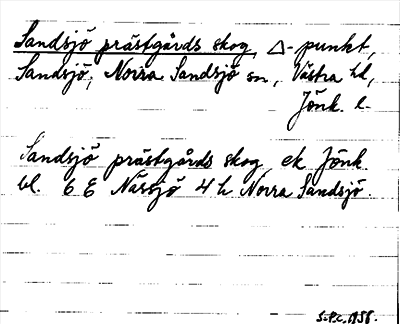 Sandsjö prästgårds skog, △-punkt,
Sandsjö, Norra Sandsjö sn, Västra hd,
Jönk. l.
Sandsjö prästgårds skog ek Jönk
bl. 6 E Nässjö 4 h Norra Sandsjö.
1958.